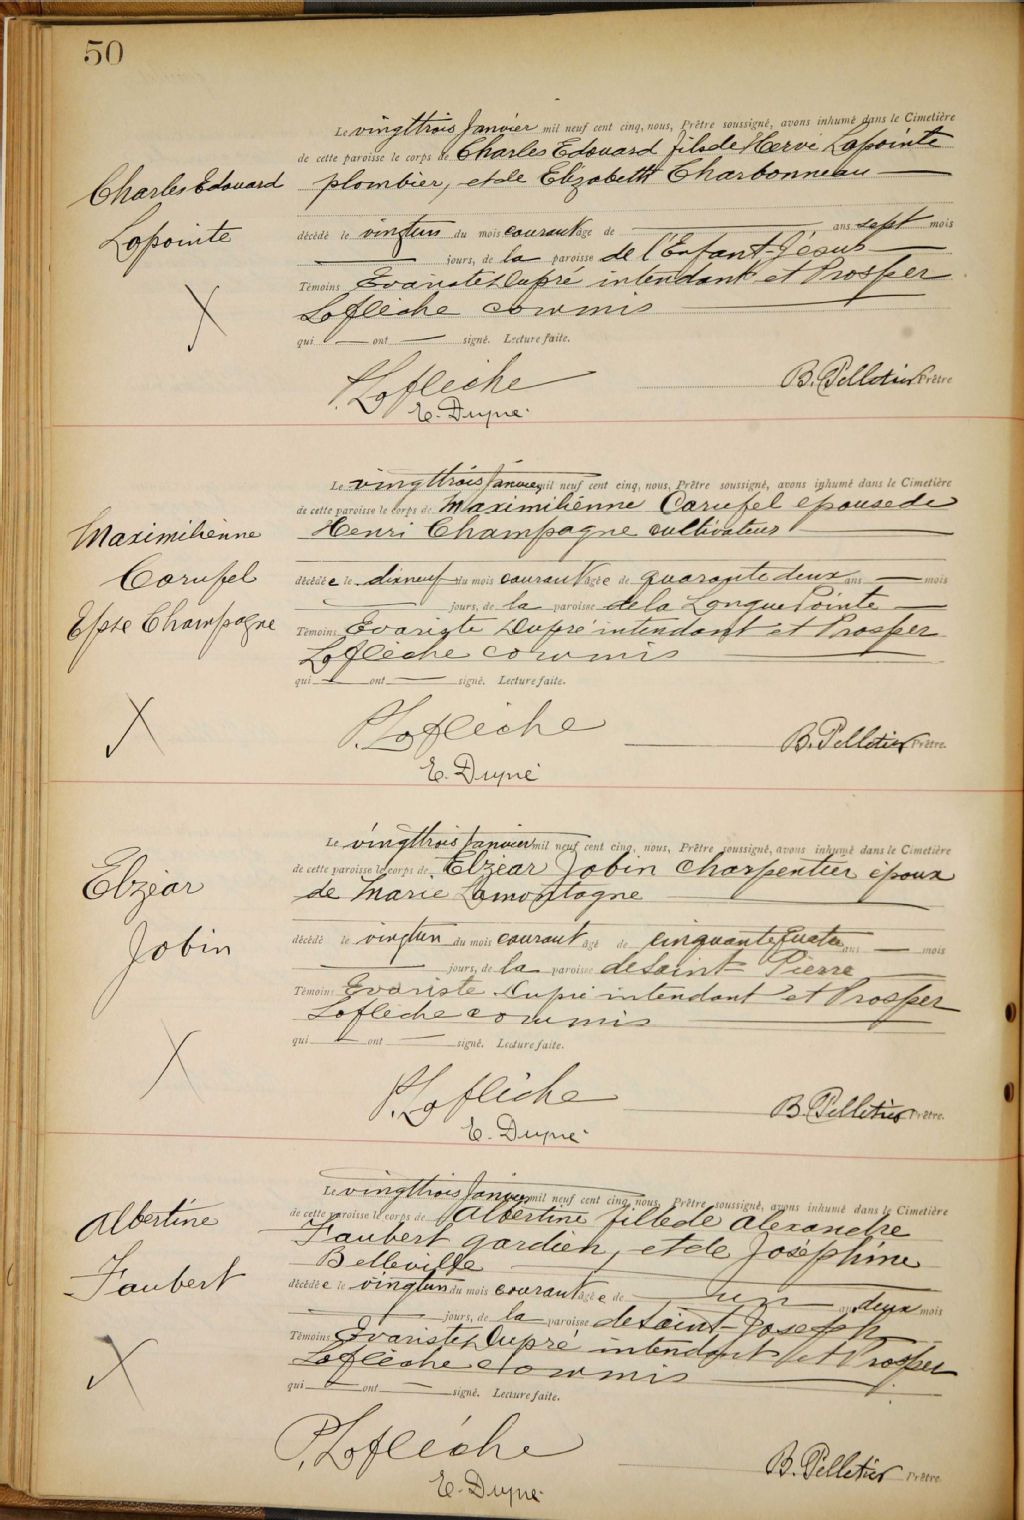 50
Le vingttrois Janvier mil neuf cent cinq, nous, Prêtre soussigné, avons inhumé dans le Cimetière
de cette paroisse le corps de Charles Edouard fils de Hervé Lapointe
Charles Edouard plombier, et de Elizabeth Charbonneau
Lapointe décédé le vingtun du mois courant âgé de ans sept mois
jours, de la paroisse de l'Enfant-Jésus
Témoins Evariste Dupré intendant et Prosper
Laflèche commis
qui ont signé. Lecture faite.
P. Laflèche B. Pelletier Prêtre
E. Dupré
Le vingttrois Janvier mil neuf cent cinq, nous, Prêtre soussigné, avons inhumé dans le Cimetière
de cette paroisse le corps de Maximiliènne Carufel epouse de
Maximiliènne Henri Champagne cultivateur
Carufel décédée le dixneuf du mois courant âgée de quarante deux ans mois
jours, de la paroisse de la Longue Pointe
Epse Champagne Témoins Evariste Dupré intendant et Prosper
Laflèche commis
qui ont signé. Lecture faite.
P. Laflèche B. Pelletier Prêtre.
E. Dupré
Le vingttrois Janvier mil neuf cent cinq, nous, Prêtre soussigné, avons inhumé dans le Cimetière
de cette paroisse le corps de Elzéar Jobin charpentier époux
Elzéar de Marie Lamontagne
Jobin décédé le vingtun du mois courant âgé de cinquante quatre ans mois
jours, de la paroisse de Saint Pierre
Témoins Evariste Dupré intendant et Prosper
Laflèche commis
qui ont signé. Lecture faite.
P. Laflèche B. Pelletier Prêtre.
E. Dupré
Le vingttrois Janvier mil neuf cent cinq, nous, Prêtre soussigné, avons inhumé dans le Cimetière
Albertine de cette paroisse le corps de Albertine fille de Alexandre
Faubert gardien, et de Joséphine
Faubert Belleville
décédée le vingtun du mois courant âgée de un an deux mois
jours, de la paroisse de Saint Joseph
Témoins Evariste Dupré intendant et Prosper
Laflèche commis
qui ont signé. Lecture faite.
P. Laflèche B. Pelletier Prêtre
E. Dupré